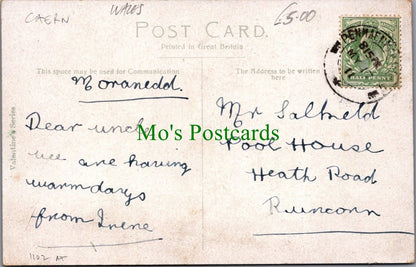 CAERN
WALES
£5.00
POST CARD.
Printed in Great Britain
This space may be used for Communication
The Address to be written here
HALF PENNY
Moranedd.
Dear uncle
we are having
warm days
from Irene
Mr Saltneld
Pool House
Heath Road
Runcorn
Valentine's Series
Mo's Postcards
1102 AT